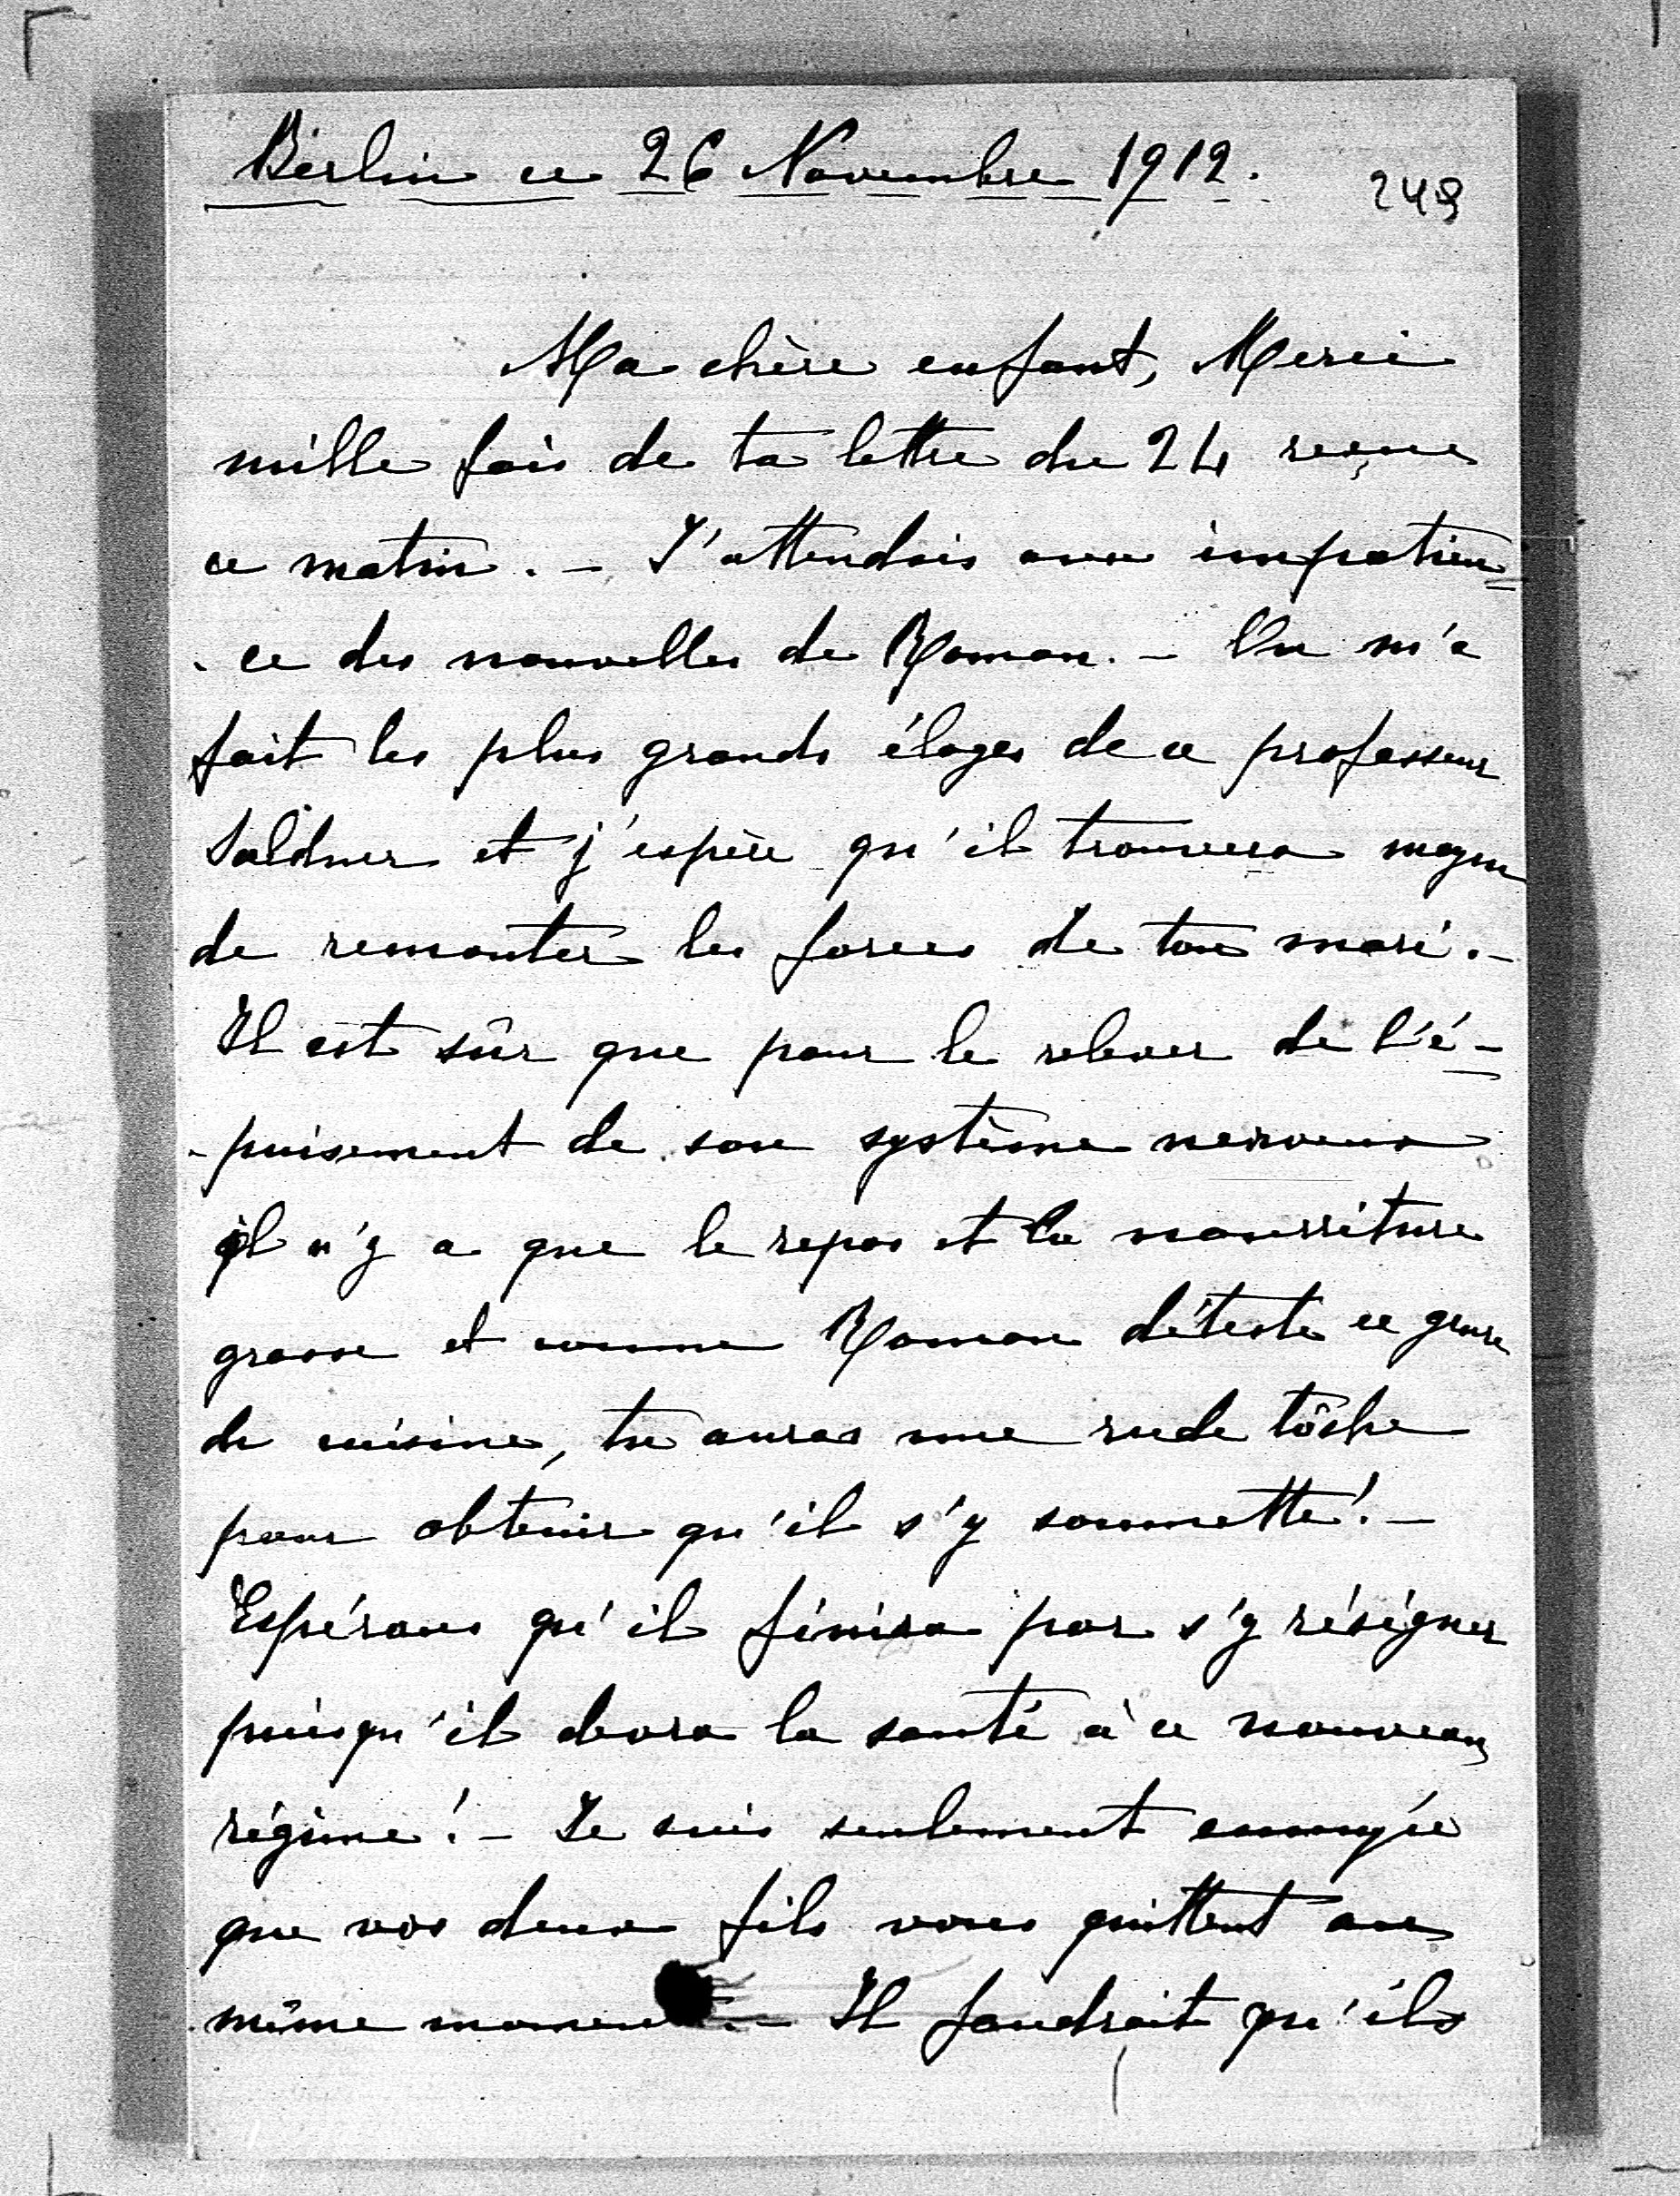 Berlin ce 26 Novembre 1912.
249
Ma chère enfant, Merci
mille fois de ta lettre du 24 reçue
ce matin. – J'attendais avec impatien=
- ce des nouvelles de Roman. – On m'a
fait les plus grands éloges de ce professeur
Saldner et j'espère qu'il trouvera moyen
de remonter les forces de ton mari. –
Il est sûr que pour le relever de l'é-
- puisement de son système nerveux
il n'y a que le repos et la nourriture
grasse et comme Roman déteste ce genre
de cuisine, tu auras une rude tâche
pour obtenir qu'il s'y soumette! –
Espérons qu'il finira par s'y résigner
puisqu'il devra la santé à ce nouveau
régime! – Je suis seulement ennuyée
que vos deux fils vous quittent au
même moment. – Il faudrait qu'ils